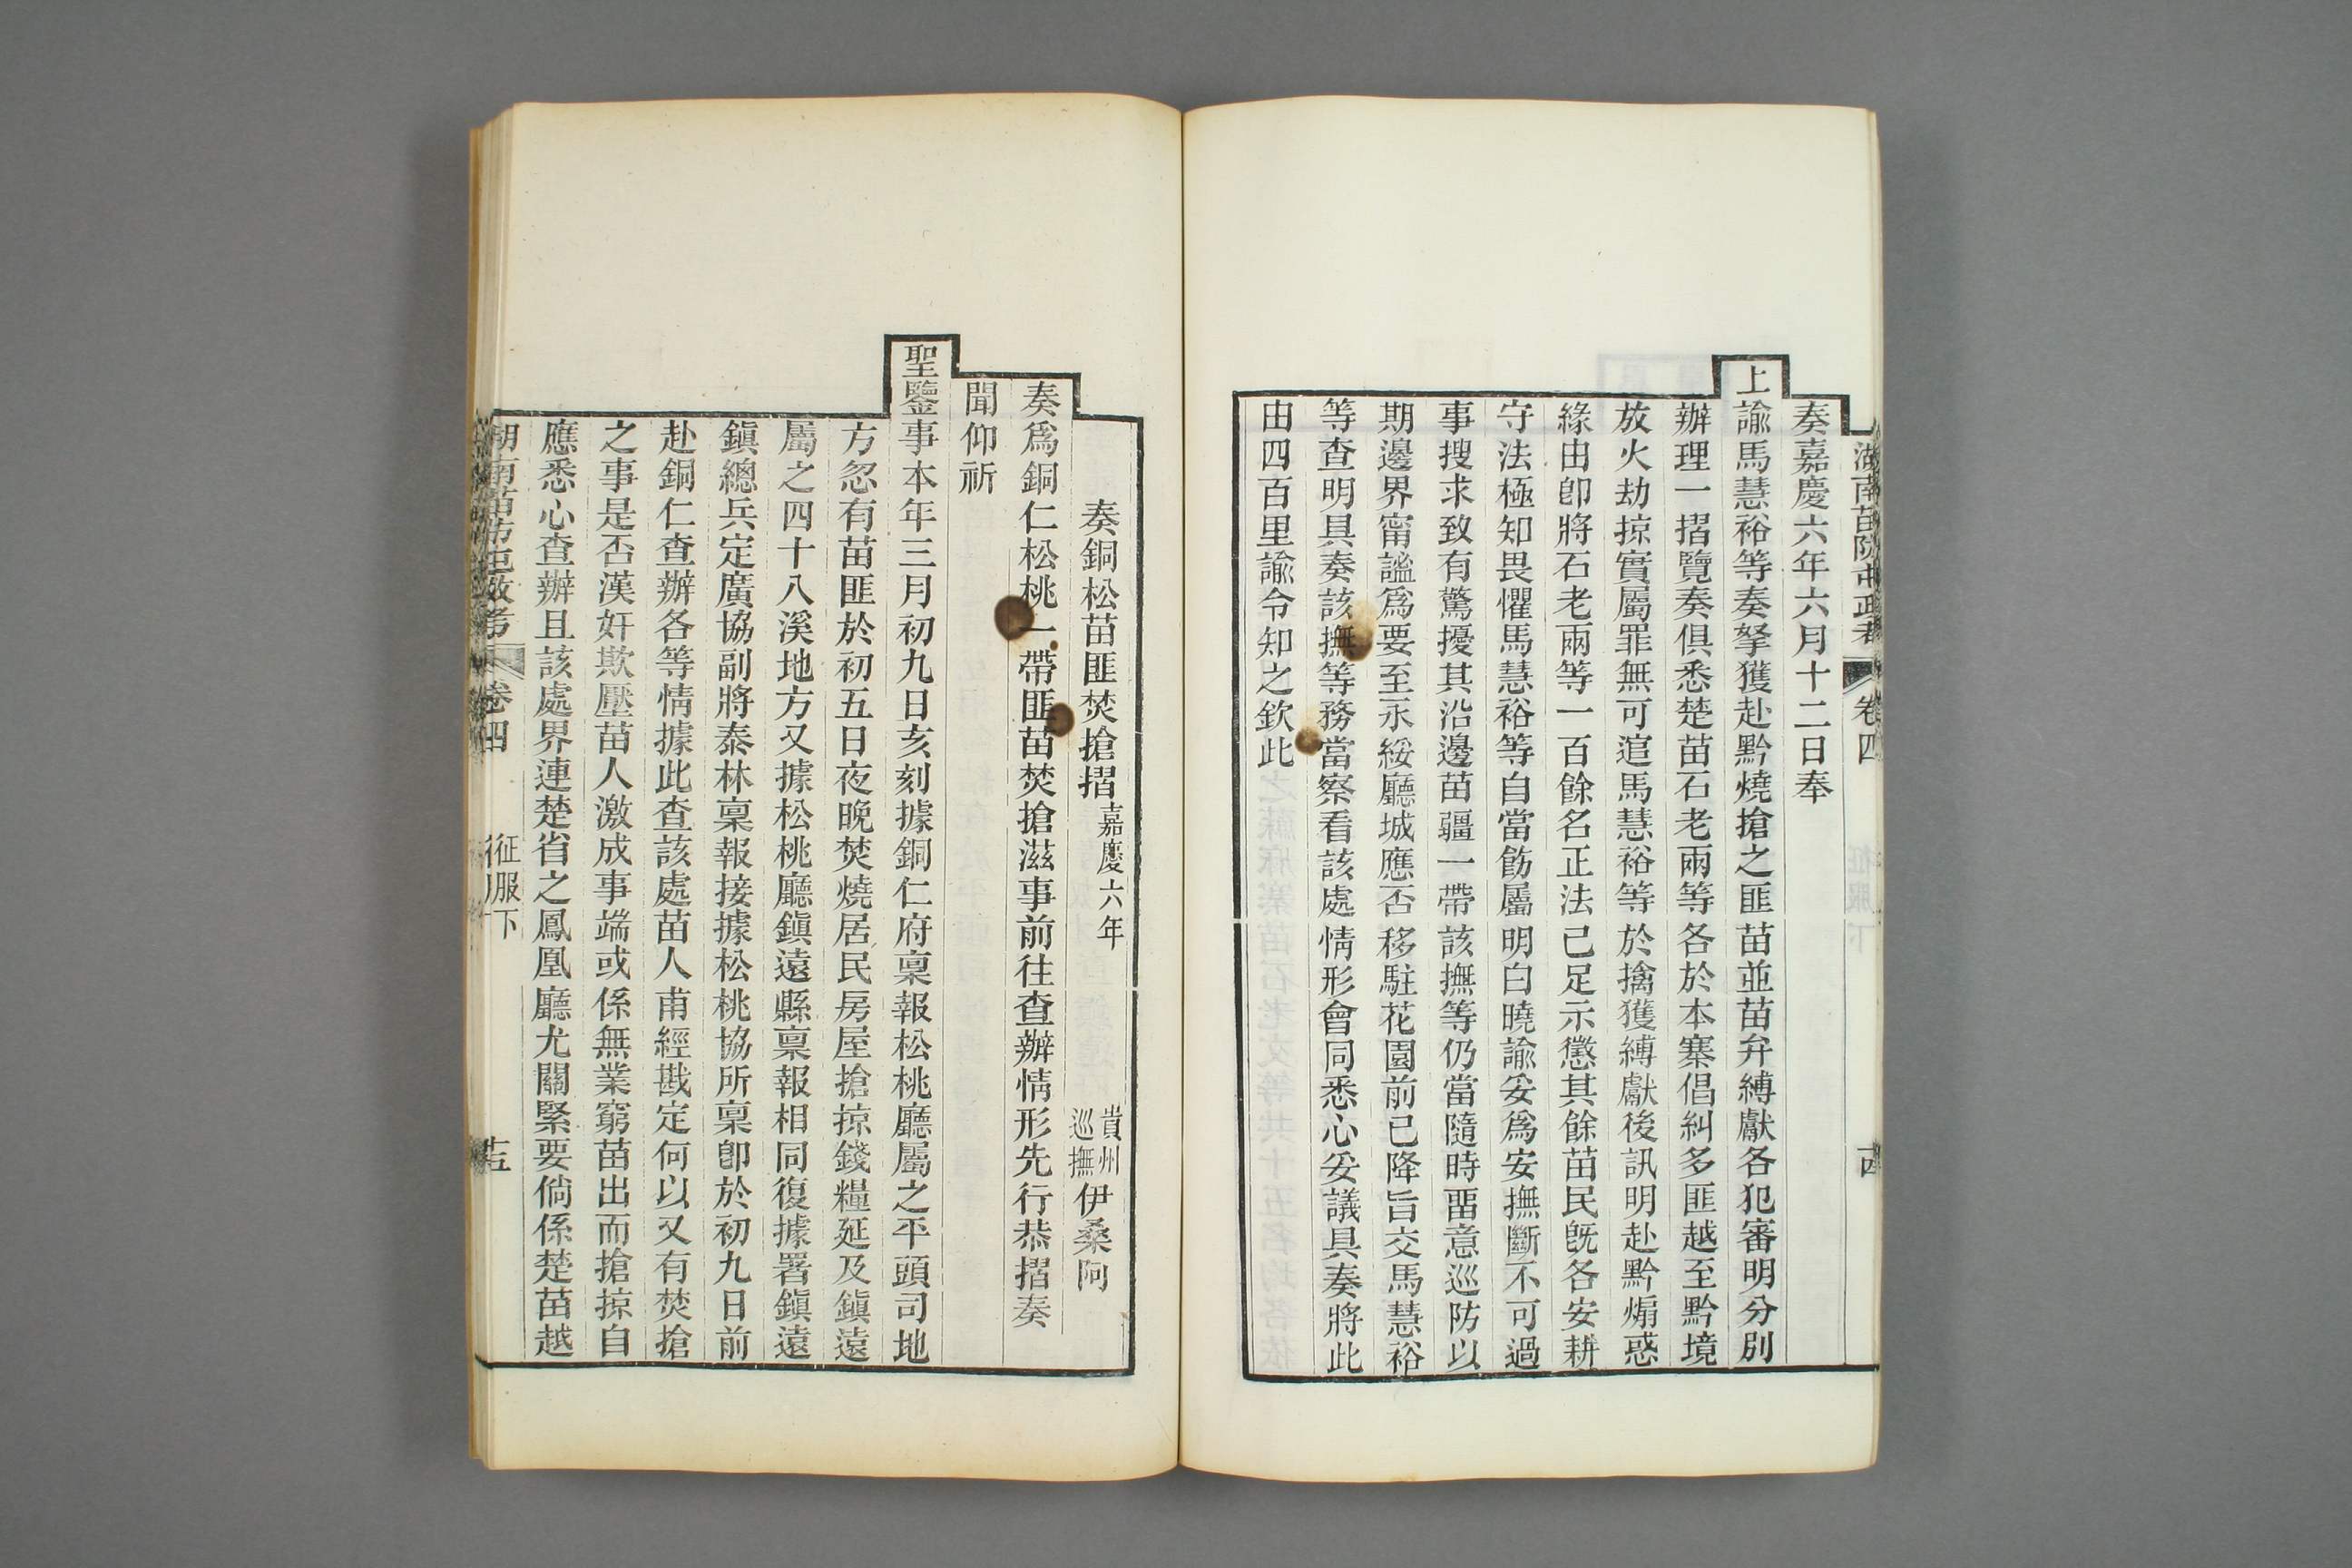 湖南苗防屯政考
卷四
奏嘉慶六年六月十二日奉
上諭馬慧裕等奏拏獲赴黔燒搶之匪苗並苗弁縛獻各犯審明分別
辦理一摺覽奏俱悉楚苗石老兩等各於本寨倡糾多匪越至黔境
放火劫掠實屬罪無可逭馬慧裕等於擒獲縛獻後訊明赴黔煽惑
緣由卽將石老兩等一百餘名正法已足示懲其餘苗民旣各安耕
守法極知畏懼馬慧裕等自當飭屬明白曉諭妥爲安撫斷不可過
事搜求致有驚擾其沿邊苗疆一帶該撫等仍當隨時畱意巡防以
期邊界甯謐爲要至永綏廳城應否移駐花園前已降旨交馬慧裕
等查明具奏該撫等務當察看該處情形會同悉心妥議具奏將此
由四百里諭令知之欽此
奏銅松苗匪焚搶摺嘉慶六年 貴州巡撫伊桑阿
奏爲銅仁松桃一帶匪苗焚搶滋事前往查辦情形先行恭摺奏
聞仰祈
聖鑒事本年三月初九日亥刻據銅仁府稟報松桃廳屬之平頭司地
方忽有苗匪於初五日夜晚焚燒居民房屋搶掠錢糧延及鎭遠
屬之四十八溪地方又據松桃廳鎭遠縣稟報相同復據署鎭遠
鎭總兵定廣協副將泰林稟報接據松桃協所稟卽於初九日前
赴銅仁查辦各等情據此查該處苗人甫經戡定何以又有焚搶
之事是否漢奸欺壓苗人激成事端或係無業窮苗出而搶掠自
應悉心查辦且該處界連楚省之鳳凰廳尤關緊要倘係楚苗越
湖南苗防屯政考
卷四
征服下